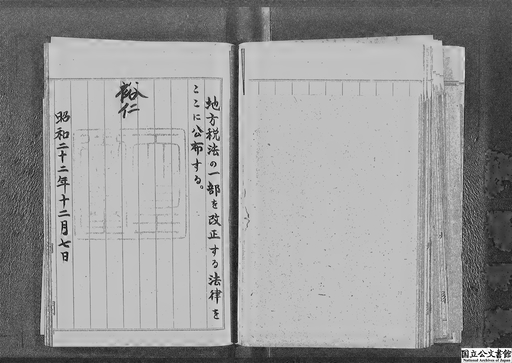 地方税法の一部を改正する法律を
ここに公布する。
裕仁
昭和二十二年十二月七日
国立公文書館
National Archives of Japan